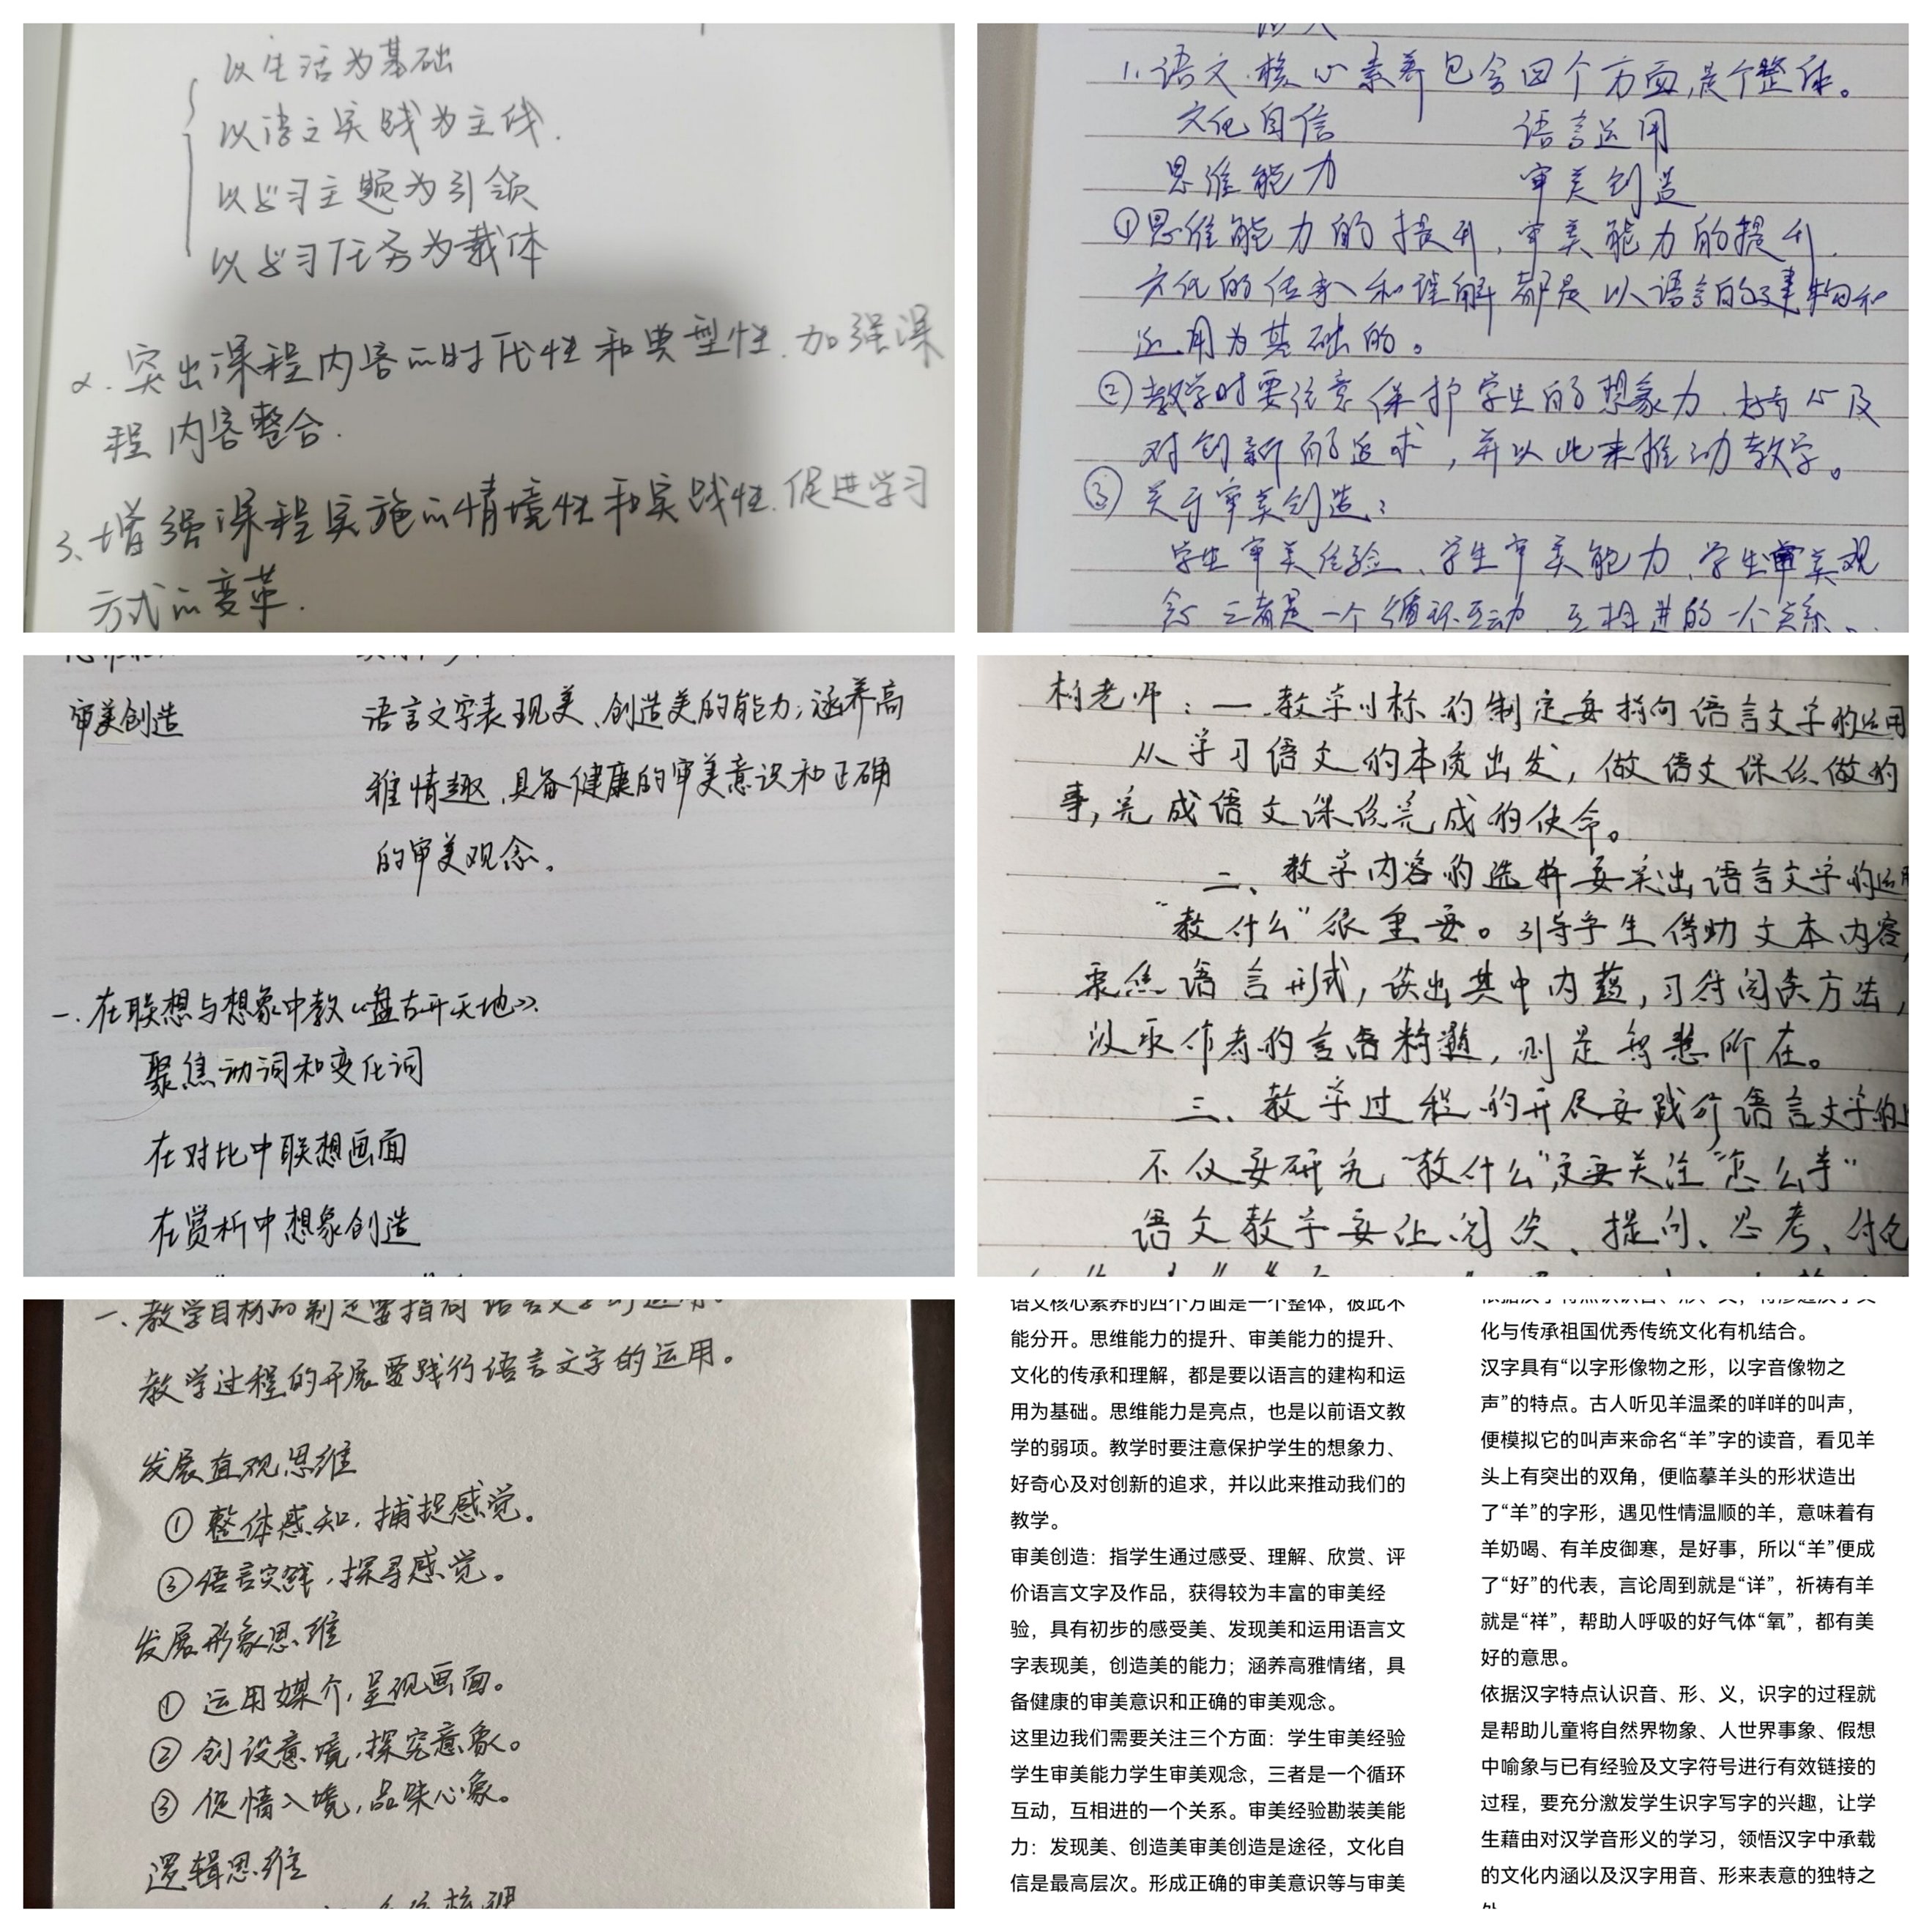 以生活为基础
以语文实践为主线.
以学习主题为引领
以学习任务为载体
2.突出课程内容的时代性和典型性.加强课
程内容整合.
3、增强课程实施的情境性和实践性.促进学习
方式的变革.
1.语文核心素养包含四个方面,是个整体。
文化自信 语言运用
思维能力 审美创造
①思维能力的提升,审美能力的提升,
文化的传承和理解都是以语言的建构和
运用为基础的。
②教学时要注意保护学生的想象力、好奇心及
对创新的追求,并以此来推动教学。
③关于审美创造:
学生审美经验、学生审美能力、学生审美观
念 三者是一个循环互动,互相进的一个关系。
审美创造 语言文字表现美、创造美的能力;涵养高
雅情趣,具备健康的审美意识和正确
的审美观念。
一.在联想与想象中教《盘古开天地》.
聚焦动词和变化词
在对比中联想画面
在赏析中想象创造
老师:一.教学目标的制定要指向语言文字的运用
从学习语文的本质出发,做语文课该做的
事,完成语文课该完成的使命。
二、教学内容的选择要突出语言文字的运用
“教什么”很重要。引导学生借助文本内容,
聚焦语言形式,读出其中内蕴,习得阅读方法,
汲取作者的言语精髓,则是智慧所在。
三、教学过程的开展要践行语言文字的
不仅要研究“教什么”,更要关注“怎么学”
语文教学要让阅读、提问、思考、讨论
一、教学目标的制定要指向语言文字的运用。
教学过程的开展要践行语言文字的运用。
发展直观思维
①整体感知,捕捉感觉。
③语言实践,探寻感觉。
发展形象思维
①运用媒介,呈现画面。
②创设意境,探究意象。
③促情入境,品味心象。
逻辑思维
语文核心素养的四个方面是一个整体，彼此不
能分开。思维能力的提升、审美能力的提升、
文化的传承和理解，都是要以语言的建构和运
用为基础。思维能力是亮点，也是以前语文教
学的弱项。教学时要注意保护学生的想象力、
好奇心及对创新的追求，并以此来推动我们的
教学。
审美创造：指学生通过感受、理解、欣赏、评
价语言文字及作品，获得较为丰富的审美经
验，具有初步的感受美、发现美和运用语言文
字表现美，创造美的能力；涵养高雅情绪，具
备健康的审美意识和正确的审美观念。
这里边我们需要关注三个方面：学生审美经验
学生审美能力学生审美观念，三者是一个循环
互动，互相进的一个关系。审美经验勘装美能
力：发现美、创造美审美创造是途径，文化自
信是最高层次。形成正确的审美意识等与审美
化与传承祖国优秀传统文化有机结合。
汉字具有“以字形像物之形，以字音像物之
声”的特点。古人听见羊温柔的咩咩的叫声，
便模拟它的叫声来命名“羊”字的读音，看见羊
头上有突出的双角，便临摹羊头的形状造出
了“羊”的字形，遇见性情温顺的羊，意味着有
羊奶喝、有羊皮御寒，是好事，所以“羊”便成
了“好”的代表，言论周到就是“详”，祈祷有羊
就是“祥”，帮助人呼吸的好气体“氧”，都有美
好的意思。
依据汉字特点认识音、形、义，识字的过程就
是帮助儿童将自然界物象、人世界事象、假想
中喻象与已有经验及文字符号进行有效链接的
过程，要充分激发学生识字写字的兴趣，让学
生藉由对汉学音形义的学习，领悟汉字中承载
的文化内涵以及汉字用音、形来表意的独特之